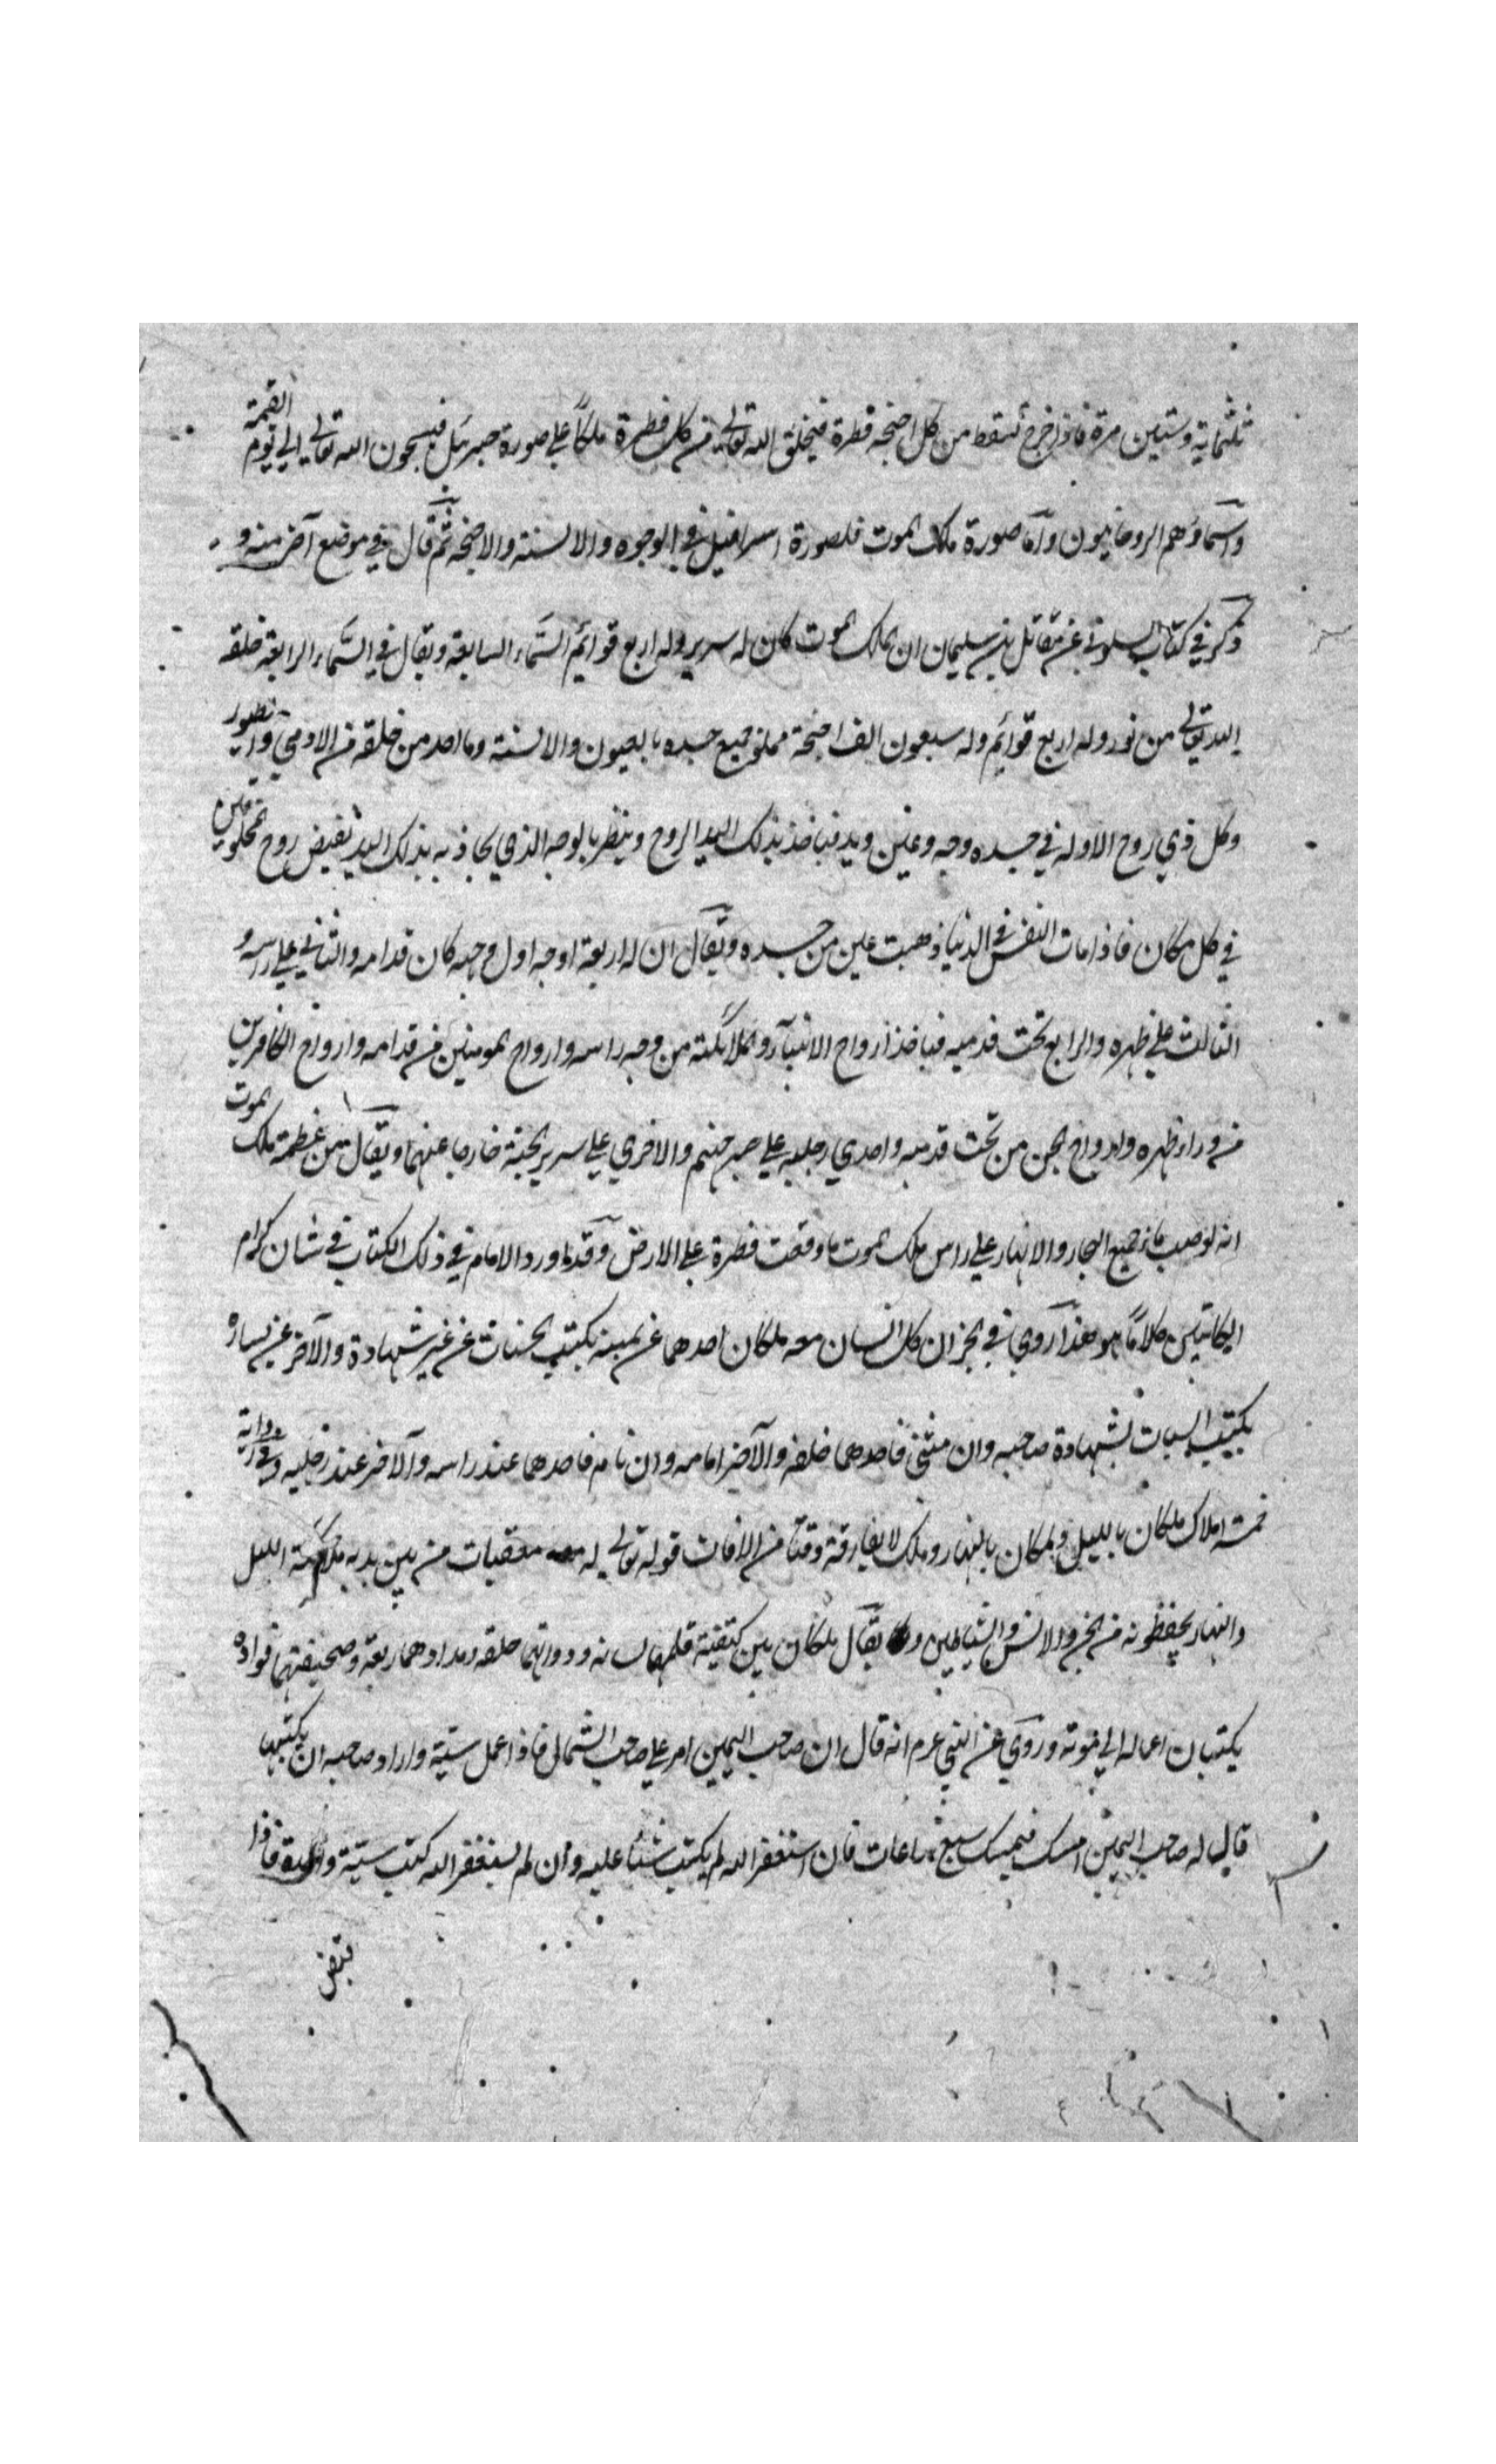 ثلثماية وستين مرة فاذا خرج تسقط من كل اجنحه قطرة فيخلق الله تعالى من كل قطرة ملكاً علي صورة جبرئيل فيسبحون الله تعالي الي يوم القيمة
واسماؤهم الروحانيون واما صورة ملك الموت فلصورة اسرافيل في الوجوه والالسنة والاجنحه ثم قال في موضع آخر منه و
ذكر في كتاب السلوك عن مقاتل بن سليمان ان ملك الموت كان له سرير وله اربع قوائم السماء السابعة ويقال في السماء الرابعة خلقه
الله تعالي من نور وله اربع قوائم وله سبعون الف اجنحة مملو جميع جسده بالعيون والالسنة وما احد من خلقه من الادمي والطيور
وكل ذي روح الا وله في جسده وجه وعين ويد فياخذ بذلك اليد الروح وينظر بالوجه الذي يحاذيه بذلك اليد يقبض روح المخلوقين
في كل مكان فاذا مات النفس في الدنيا ذهبت عين من جسده ويقال ان له اربعة اوجه اول وجهه كان قدامه والثاني علي راسه و
الثالث علي ظهره والرابع تحت قدميه فياخذ ارواح الانبيآء والملائكة من وجه راسه وارواح المومنين من قدامه وارواح الكافرين
من وراء ظهره وارواح الجن من تحت قدميه واحدي رجليه علي جهنم والاخري علي سرير الجنة خارجا عنهما ويقال من عظمة ملك الموت
انه لو صب ماء جميع البحار والانهار علي راس ملك الموت ما وقعت قطرة علي الارض وقد اورد الامام في ذلك الكتاب في شان كرام
الكاتبين كلاماً هو هذا روي في الخبر ان كل انسان معه ملكان احدهما عن يمينه يكتب الحسنات من غير شهادة والآخر عن يساره
يكتب السيات بشهادة صاحبه وان مشي فاحدهما خلفه والآخر امامه وان نام فاحدهما عند راسه والآخر عند رجليه وفي رواية
خمسة املاك ملكان بالليل وملكان بالنهار وملك لا يفارقه وقتا من الاوقات قوله تعالي له معقبات من بين يديه ملائكة الليل
والنهار يحفظونه من الجن والانس والشياطين ويقال ملكان بين كتفيه قلمهما لسانه ودواتهما حلقه ومدادهما ريقه وصحيفتهما فواده
يكتبان اعماله الي موته وروي عن النبي عرم انه قال ان صاحب اليمين امر علي صاحب الشمال فاذا عمل سيئة واراد صاحبه ان يكتبها
قال له صاحب اليمين امسك فيمسك سبع ساعات فان استغفر الله لم يكتب شيئا عليه وان لم يستغفر الله كتب سيئة واحدة فاذا